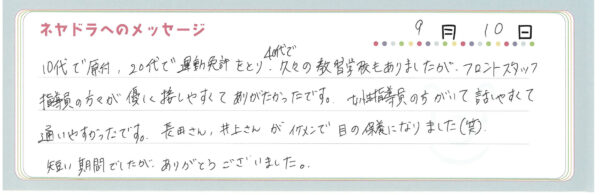 ネヤドラへのメッセージ
9月10日
10代で原付、20代で運動免許をとり、40代で久々の教習学校もありましたが、フロントスタッフ
指導員の方々が優しく接しやすくてありがたかったです。女性指導員の方がいて話しやすくて
通いやすかったです。長田さん、井上さんがイケメンで目の保養になりました(笑)
短い期間でしたがありがとうございました。